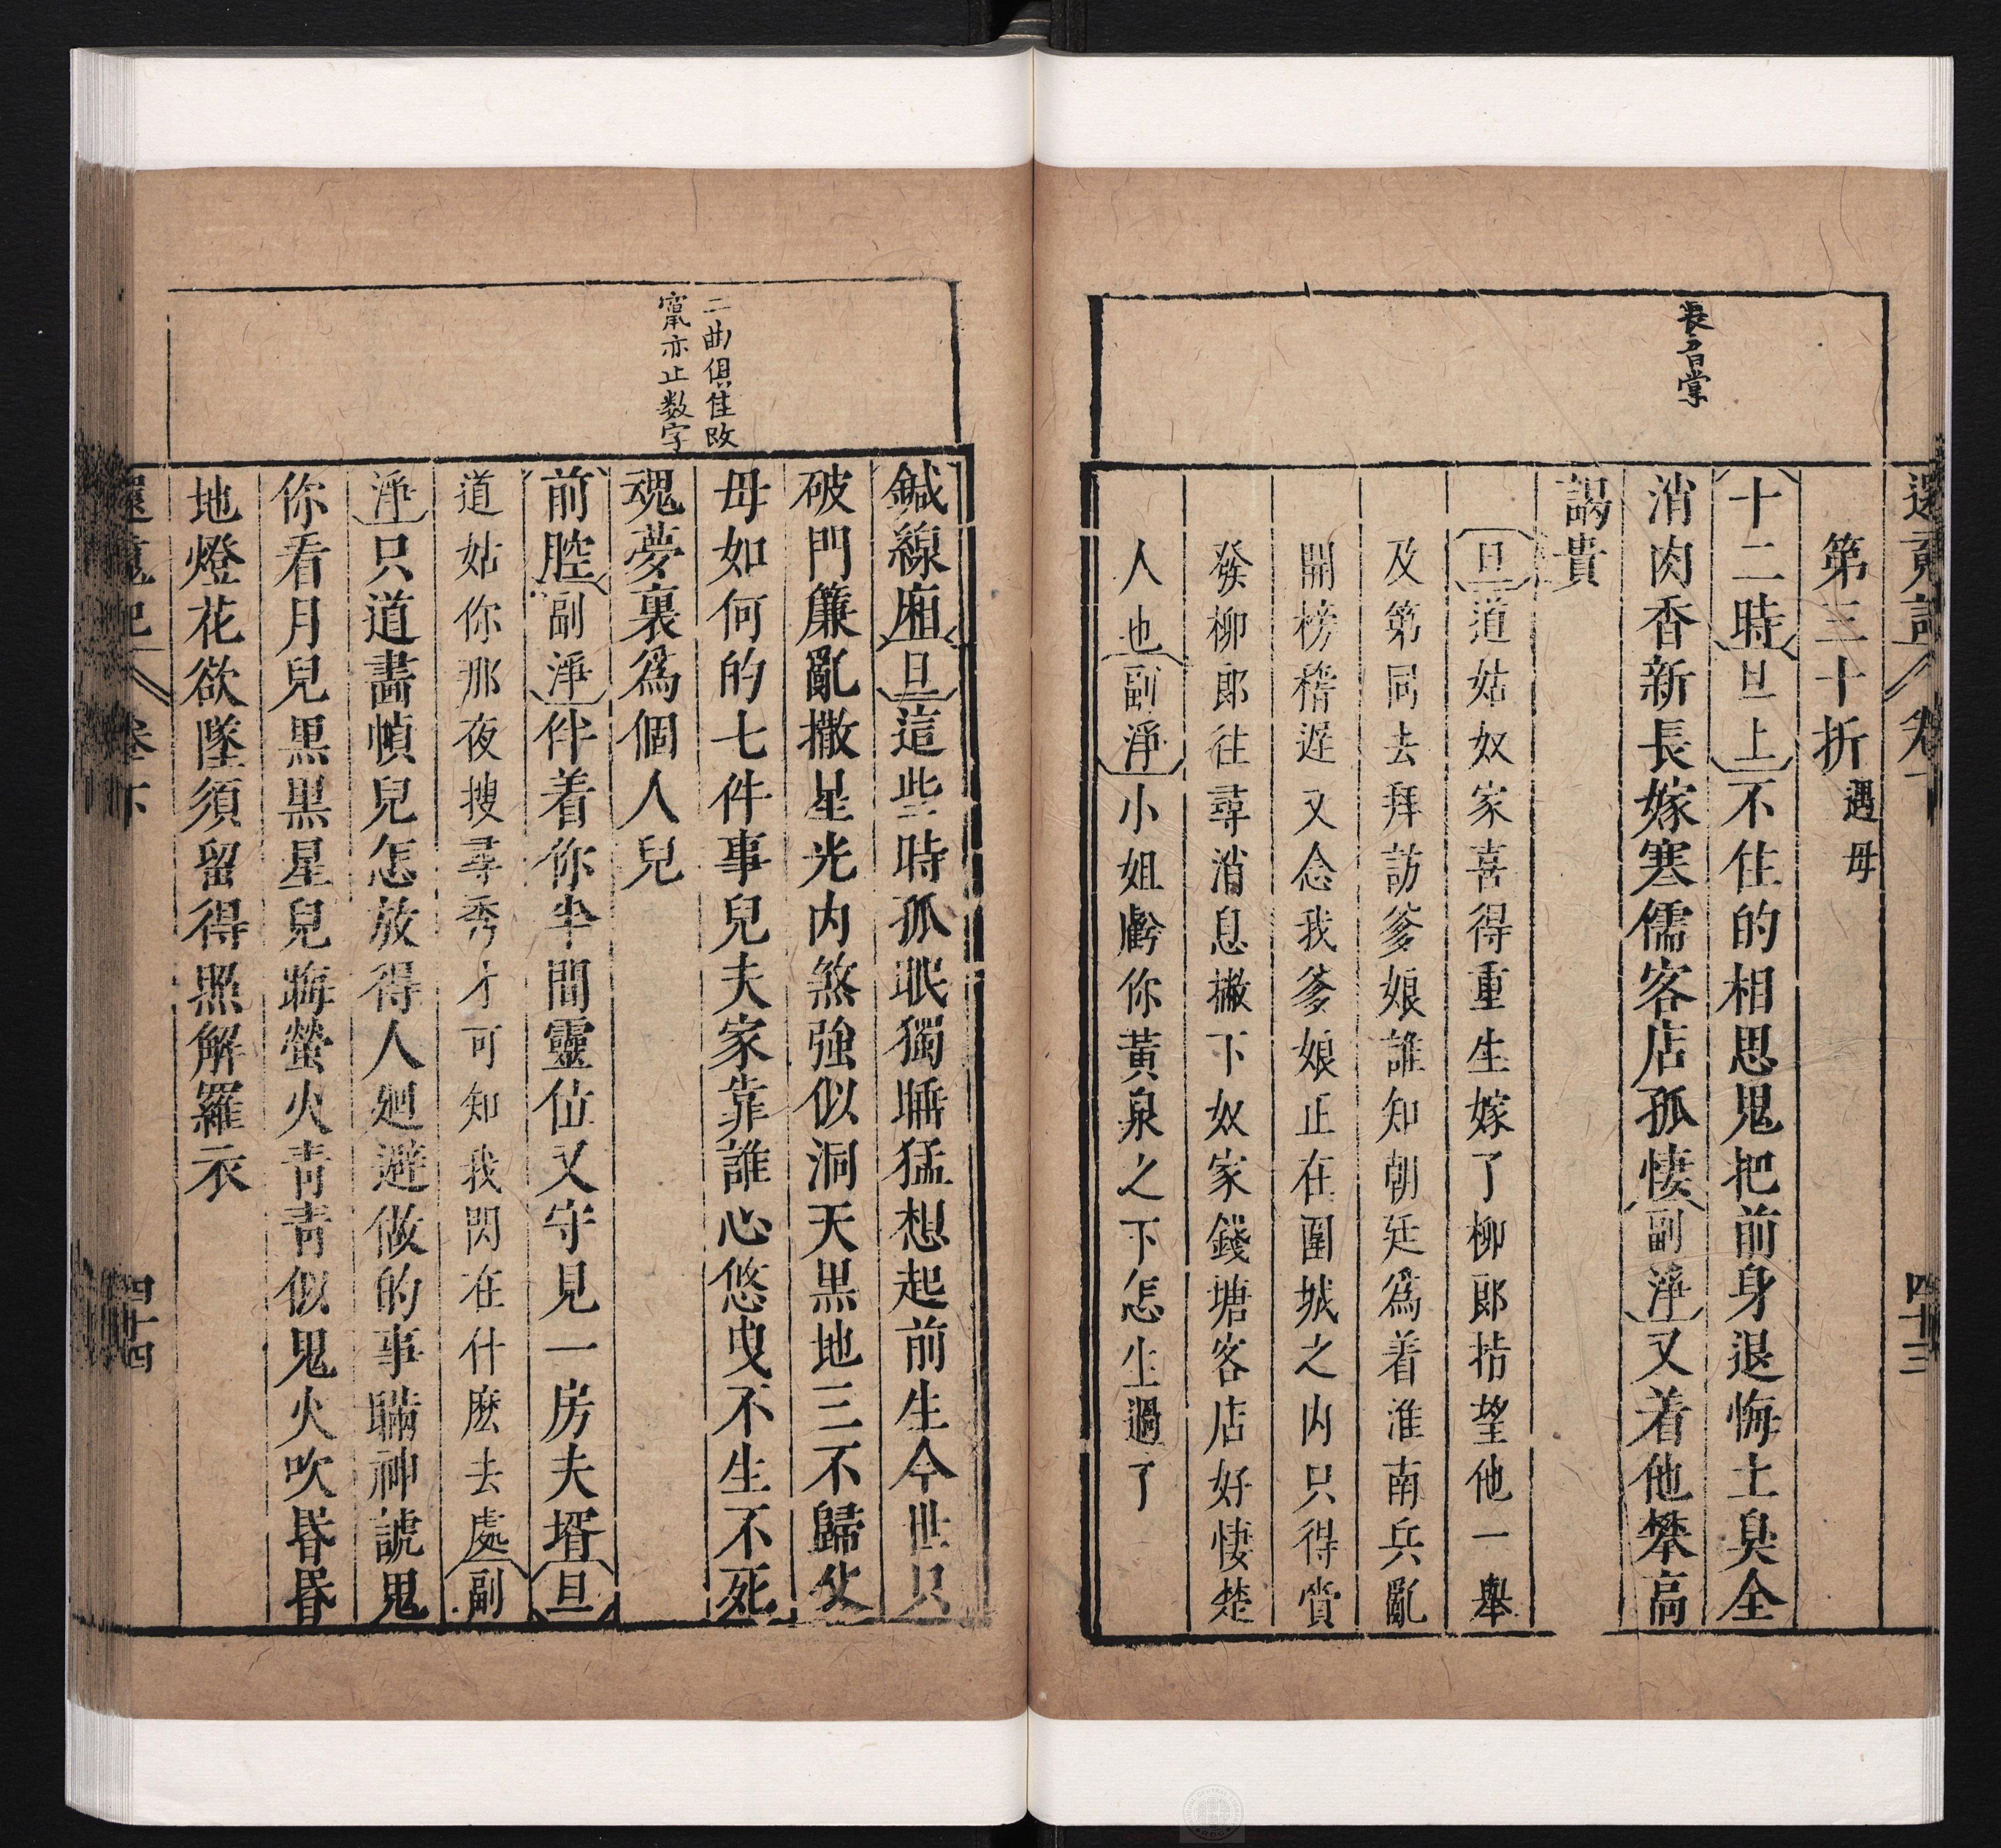 還魂記 卷下 四十三
第三十折 遇母
十二時 旦上 不住的相思鬼把前身退悔土臭全
消肉香新長嫁寒儒客店孤悽 副淨 又着他攀高
謁貴
旦 道姑奴家喜得重生嫁了柳郎指望他一舉
及第同去拜訪爹娘誰知朝廷爲着淮南兵亂
開榜稽遲又念我爹娘正在圍城之內只得賫
發柳郎往尋消息撇下奴家錢塘客店好悽楚
人也 副淨 小姐虧你黃泉之下怎生過了
鍼線廂 旦 這些時孤眠獨睡猛想起前生今世只
破門簾亂撒星光內煞強似洞天黑地三不歸父
母如何的七件事兒夫家靠誰心悠曳不生不死
魂夢裏爲個人兒
二曲俱佳改
竄亦止数字
前腔 副淨 伴着你半間靈位又守見一房夫壻 旦
道姑你那夜搜尋秀才可知我閃在什麽去處 副
淨 只道畵幀兒怎放得人𢌞避做的事瞞神諕鬼
你看月兒黑黑星兒晦螢火青青似鬼火吹昏昏
地燈花欲墜須留得照解羅衣
還魂記 卷下 四十四